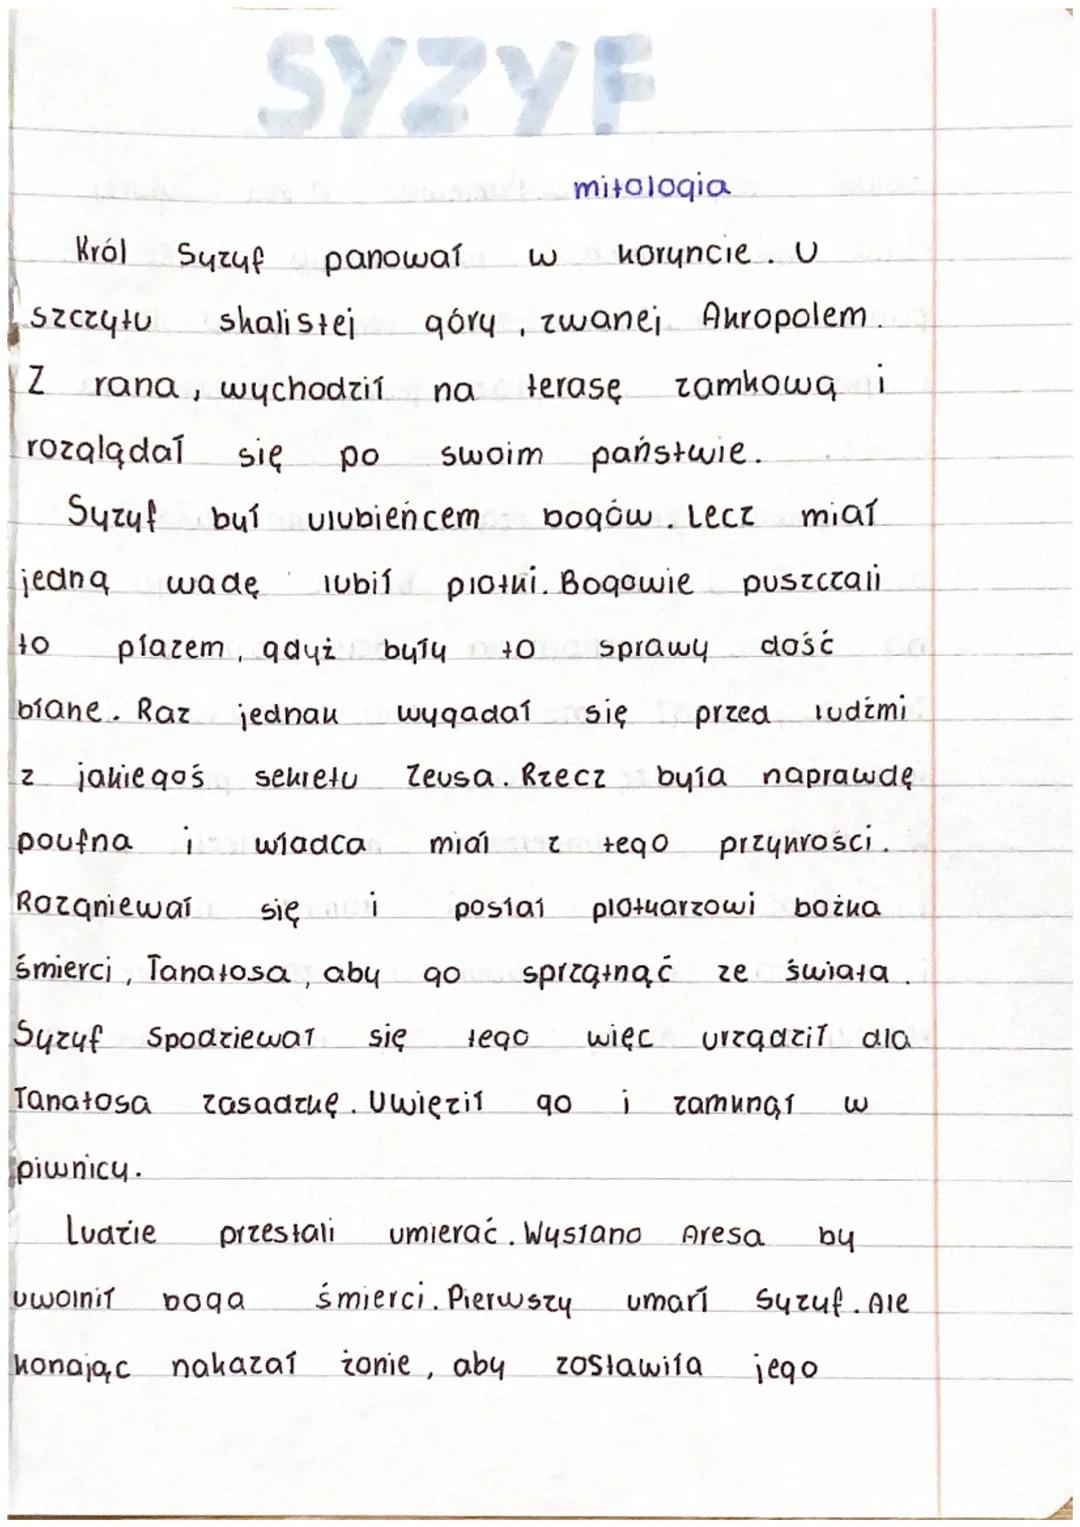 SYZYF
mitologia
Król Syzyf panował w koryncie. U
szczytu skalistej góry, zwanej Akropolem.
Z rana, wychodził na terasę zamkową i
rozglądał się po swoim państwie.
Syzyf był ulubieńcem bogów. Lecz miał
jedną wadę lubił plotki. Bogowie puszczali
to płazem, gdyż były to sprawy dość
błane. Raz jednak wygadał się przed ludźmi
z jakiegoś sekretu Zeusa. Rzecz była naprawdę
poufna i władca miał z tego przykrości.
Rozgniewał się i posłał plotkarzowi bożka
śmierci, Tanatosa, aby go sprzątnąć ze świata.
Syzyf Spodziewał się tego więc urządził dla
Tanatosa zasadzkę. Uwięził go i zamknął w
piwnicy.
Ludzie przestali umierać. Wysłano Aresa by
uwolnił boga śmierci. Pierwszy umarł Syzyf. Ale
konając nakazał żonie, aby zostawiła jego